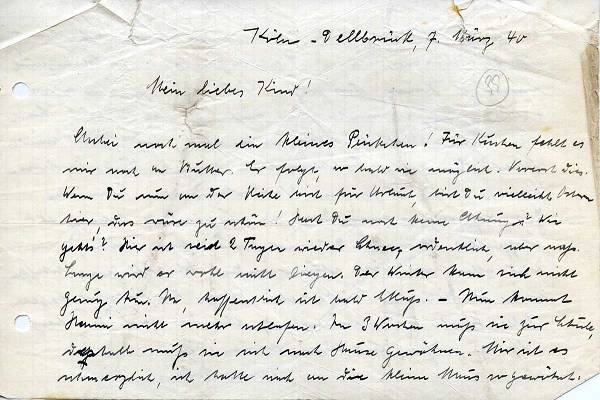 Köln-Dellbrück, 7. März 40
39
Mein liebes Kind!
Anbei noch mal ein kleines Päckchen! Für Kuchen fehlt es
mir noch an Butter. Er folgt, so bald wie möglich. Vorerst dies.
Wenn Du nun an der Reihe bist für Urlaub, bist Du vielleicht Ostern
hier, das wäre zu schön! Hast Du noch keine Ahnung? Wie
gehts? Hier ist seit 2 Tagen wieder Schnee, ordentlich, aber naß.
Lange wird er wohl nicht liegen. Der Winter kann sich nicht
genug tun. Na, hoffentlich ist bald Schluß. — Nun kommt
Hanni nicht mehr schlafen. In 3 Wochen muß sie zur Schule,
deshalb muß sie sich nach Hause gewöhnen. Mir ist es
schmerzlich, ich hatte mich an die kleine Maus so gewöhnt.